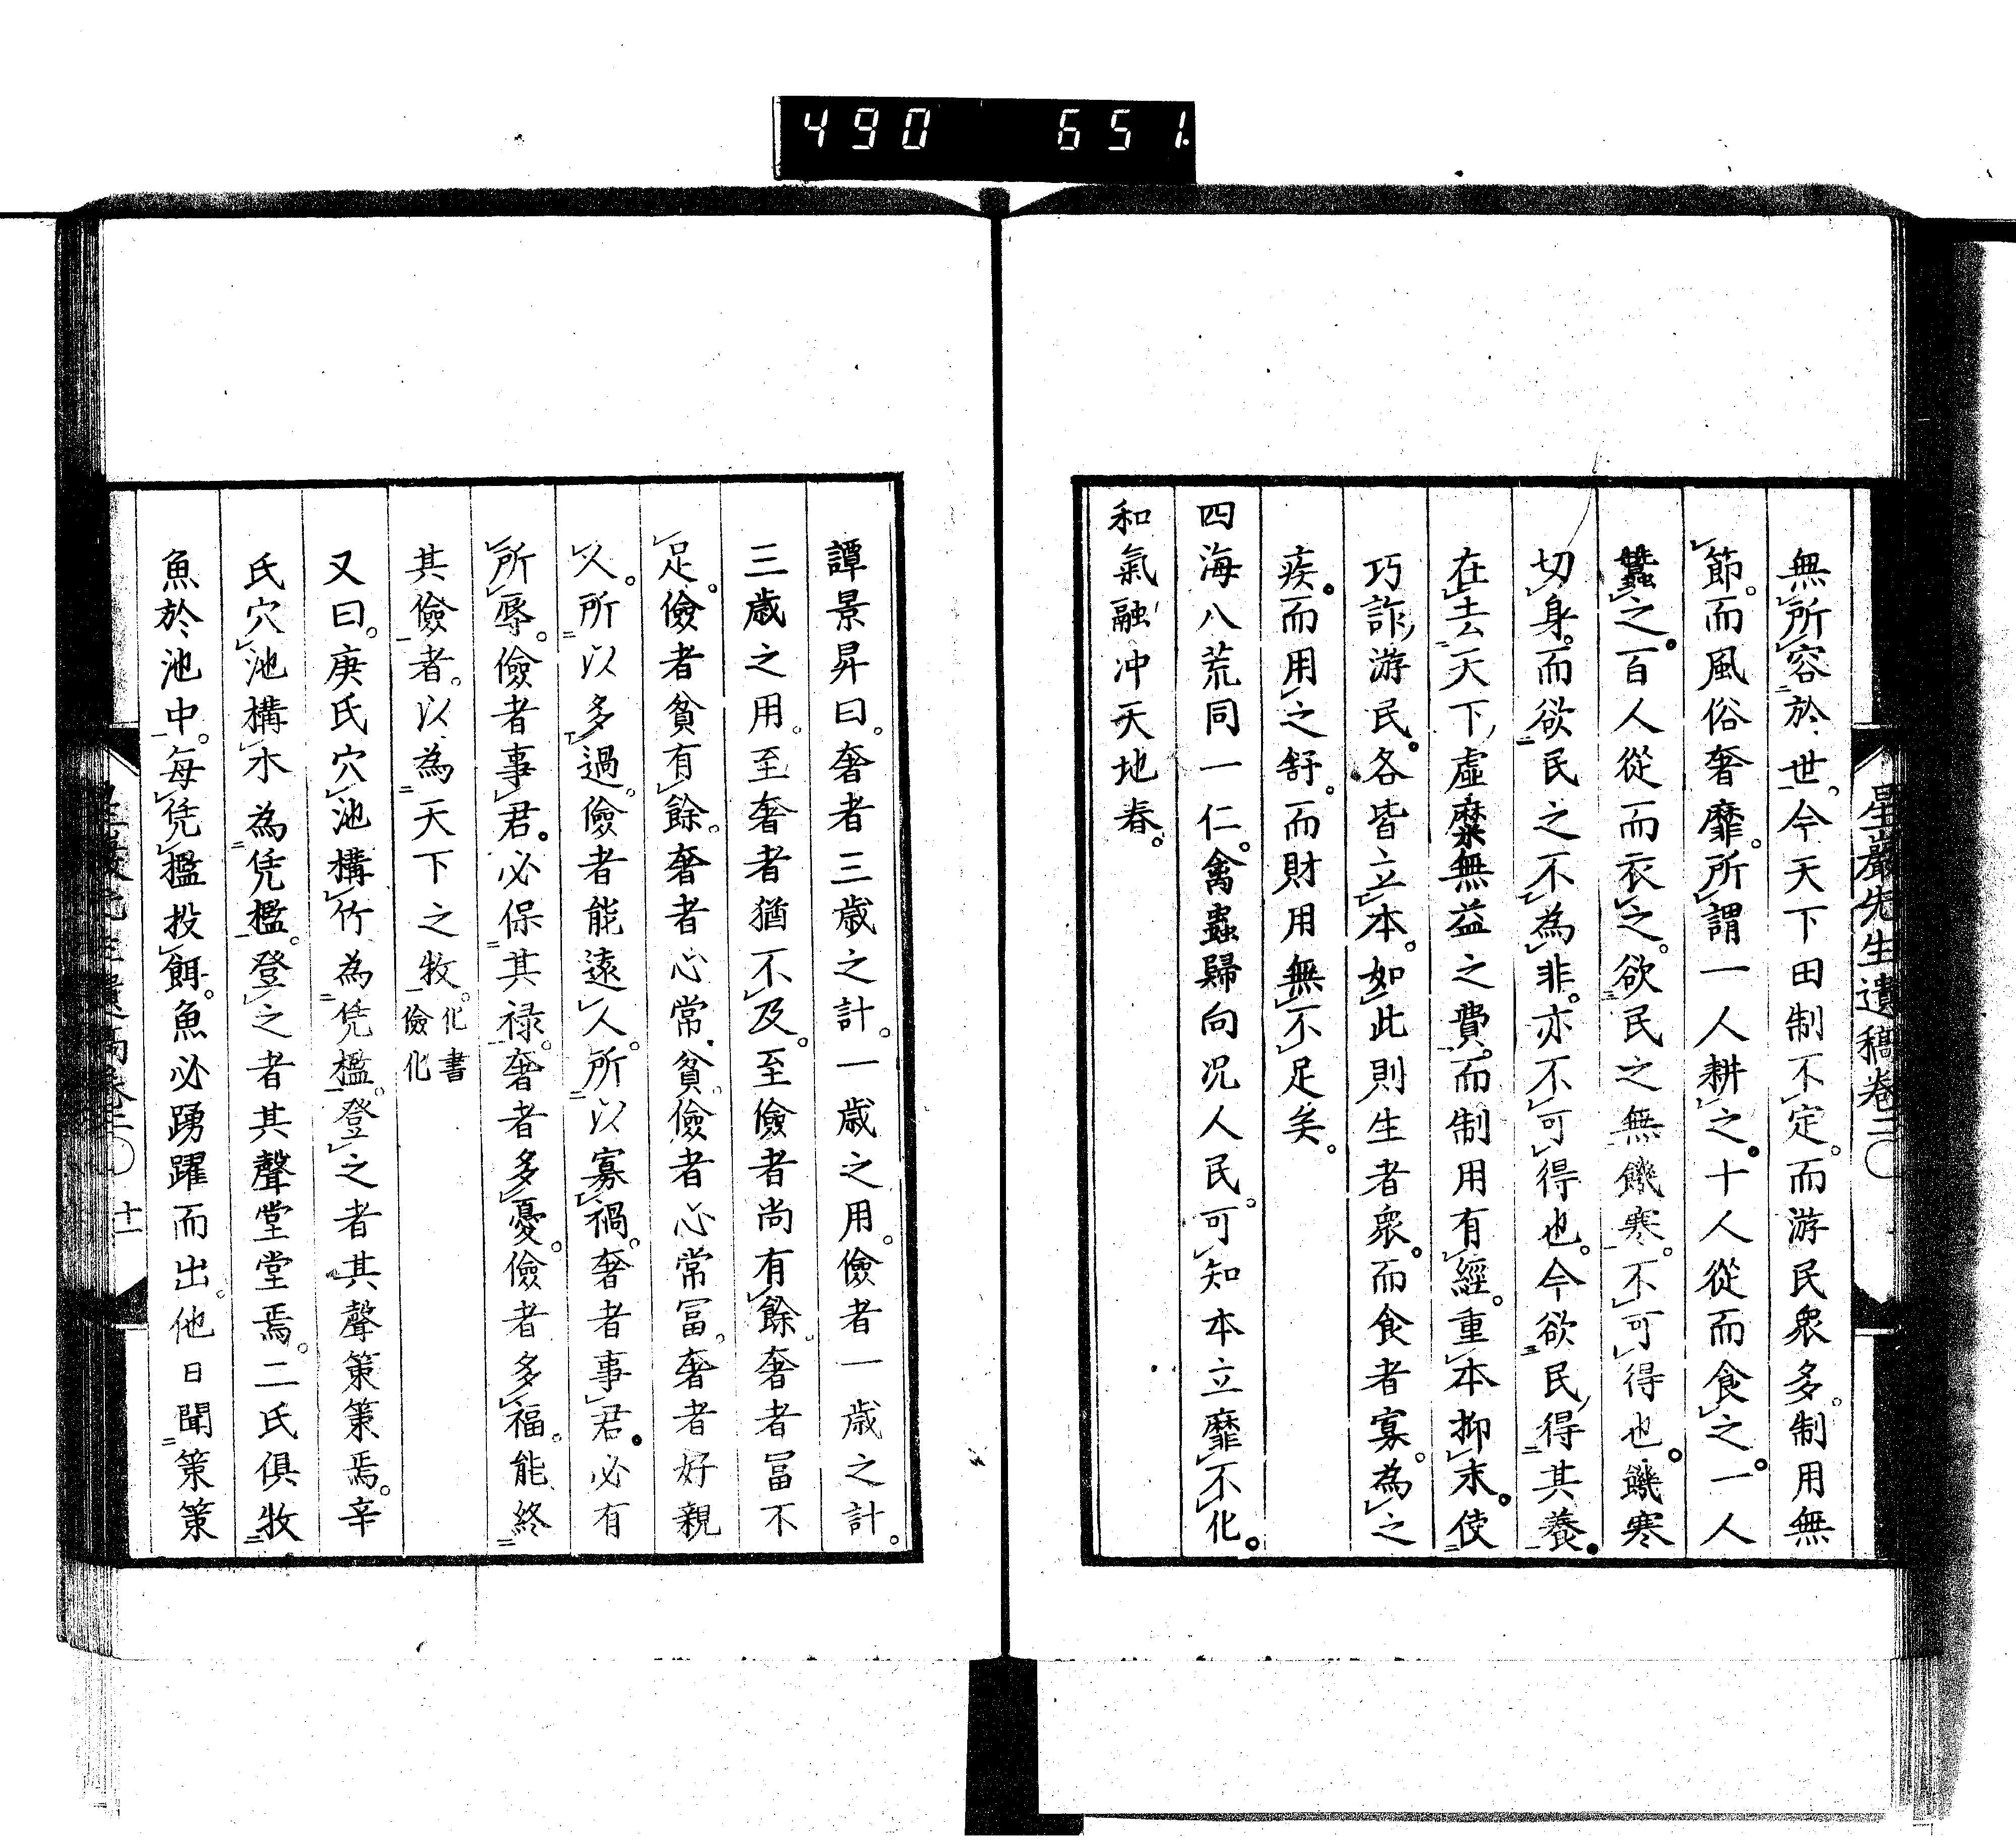 490 651
星巖先生遺稿卷二〇
無所容於世。今天下田制不定。而游民衆多。制用無
節。而風俗奢靡。所謂一人耕之。十人從而食之。一人
蠶之。百人從而衣之。欲民之無饑寒。不可得也。饑寒
切身。而欲民之不為非。亦不可得也。今欲民得其養。
在去天下虛糜無益之費。而制用有經。重本抑末。使
巧詐游民。各皆立本。如此則生者衆。而食者寡。為之
疾。而用之舒。而財用無不足矣。
四海八荒同一仁。禽蟲歸向况人民。可知本立靡不化。
和氣融冲天地春。
譚景昇曰。奢者三歲之計。一歲之用。儉者一歲之計。
三歲之用。至奢者猶不及。至儉者尚有餘。奢者冨不
足。儉者貧有餘。奢者心常貧。儉者心常冨。奢者好親
人。所以多過。儉者能遠人。所以寡禍。奢者事君。必有
所辱。儉者事君。必保其祿。奢者多憂。儉者多福。能終
其儉者。以為天下之牧。化書
儉化
又曰。庚氏穴池構竹為凭檻。登之者其聲策策焉。辛
氏穴池構木為凭檻。登之者其聲堂堂焉。二氏俱牧
魚於池中。每凭檻投餌。魚必踴躍而出。他日聞策策
十一